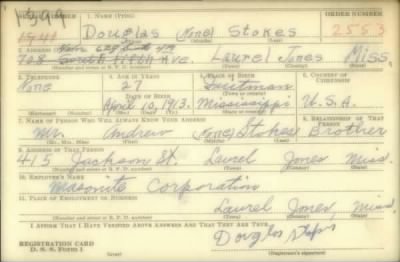 1399
SERIAL NUMBER 1. NAME (Print) ORDER NUMBER
1941 Douglas (None) Stokes 2553
(First) (Middle) (Last)
2. ADDRESS (Print)
708 South Fifth Ave. Laurel Jones Miss.
(Number and street or R. F. D. number) (Town) (County) (State)
3. TELEPHONE 4. AGE IN YEARS 5. PLACE OF BIRTH 6. COUNTRY OF CITIZENSHIP
None 27
DATE OF BIRTH
April 10, 1913. Mississippi U. S. A.
(Mo.) (Day) (Yr.) (State or country)
7. NAME OF PERSON WHO WILL ALWAYS KNOW YOUR ADDRESS 8. RELATIONSHIP OF THAT PERSON
Mr. Andrew (None) Stokes Brother
(Mr., Mrs., Miss) (First) (Middle) (Last)
9. ADDRESS OF THAT PERSON
415 Jackson St. Laurel Jones Miss.
(Number and street or R. F. D. number) (Town) (County) (State)
10. EMPLOYER'S NAME
Masonite Corporation
11. PLACE OF EMPLOYMENT OR BUSINESS
Laurel Jones, Miss.
(Number and street or R. F. D. number) (Town) (County) (State)
I AFFIRM THAT I HAVE VERIFIED ABOVE ANSWERS AND THAT THEY ARE TRUE.
REGISTRATION CARD
D. S. S. Form 1
Douglas
(Registrant's signature)